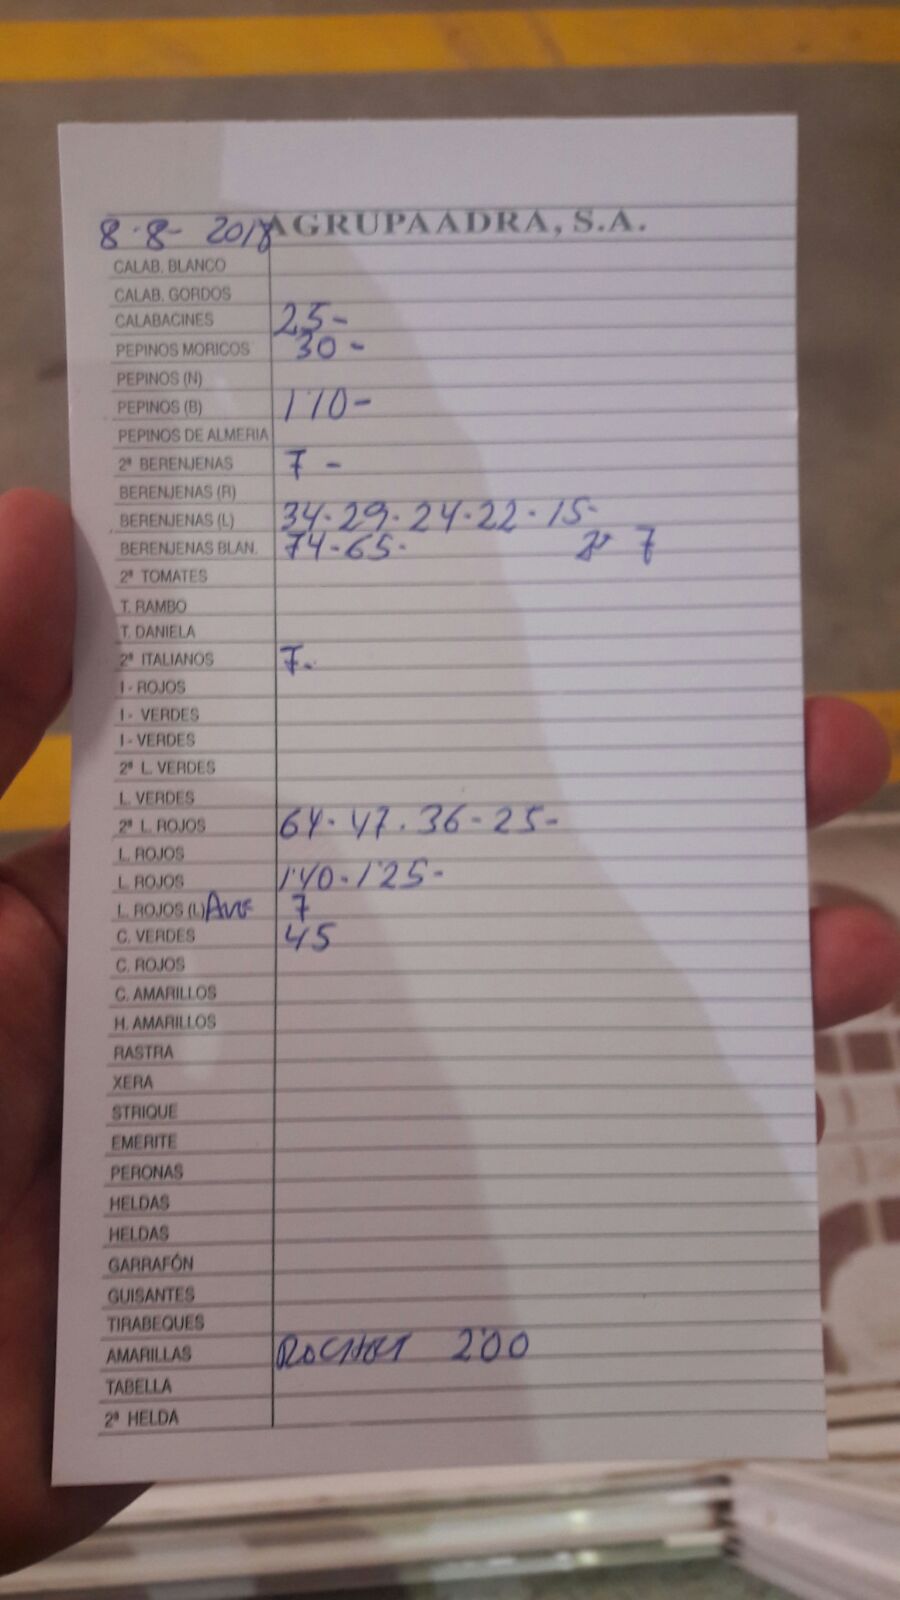 8-8-2018 AGRUPAADRA, S.A.
CALAB. BLANCO
CALAB. GORDOS
CALABACINES 25-
PEPINOS MORICOS 30-
PEPINOS (N)
PEPINOS (B) 1'10-
PEPINOS DE ALMERIA
2ª BERENJENAS 7-
BERENJENAS (R)
BERENJENAS (L) 34-29-24-22-15-
BERENJENAS BLAN. 74-65- 2ª 7
2ª TOMATES
T. RAMBO
T. DANIELA
2ª ITALIANOS 7-
I - ROJOS
I - VERDES
I - VERDES
2ª L. VERDES
L. VERDES
2ª L. ROJOS 64-47-36-25-
L. ROJOS
L. ROJOS 1'40-1'25-
L. ROJOS (L) 7
C. VERDES 45
C. ROJOS
C. AMARILLOS
H. AMARILLOS
RASTRA
XERA
STRIQUE
EMERITE
PERONAS
HELDAS
HELDAS
GARRAFÓN
GUISANTES
TIRABEQUES
AMARILLAS 2'00
TABELLA
2ª HELDA